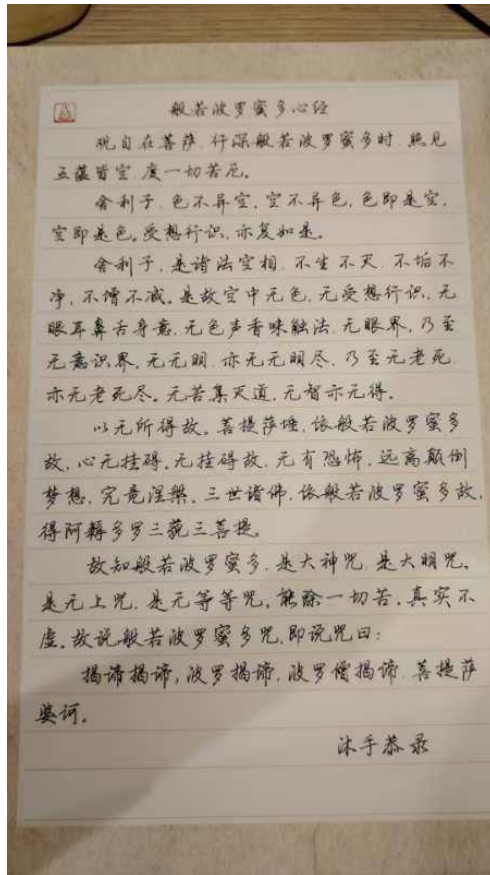 般若波罗蜜多心经
观自在菩萨,行深般若波罗蜜多时,照见
五蕴皆空,度一切苦厄。
舍利子,色不异空,空不异色,色即是空,
空即是色。受想行识,亦复如是。
舍利子,是诸法空相,不生不灭,不垢不
净,不增不减。是故空中无色,无受想行识,无
眼耳鼻舌身意,无色声香味触法,无眼界,乃至
无意识界,无无明,亦无无明尽,乃至无老死,
亦无老死尽。无苦集灭道,无智亦无得。
以无所得故。菩提萨埵,依般若波罗蜜多
故,心无挂碍。无挂碍故,无有恐怖,远离颠倒
梦想,究竟涅槃。三世诸佛,依般若波罗蜜多故,
得阿耨多罗三藐三菩提。
故知般若波罗蜜多,是大神咒,是大明咒,
是无上咒,是无等等咒。能除一切苦,真实不
虚。故说般若波罗蜜多咒,即说咒曰:
揭谛揭谛,波罗揭谛,波罗僧揭谛,菩提萨
婆诃。
沐手恭录